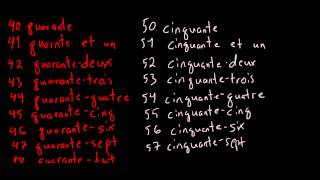 40 quarante
41 quarante et un
42 quarante-deux
43 quarante-trois
44 quarante-quatre
45 quarante-cinq
46 quarante-six
47 quarante-sept
48 quarante-huit
50 cinquante
51 cinquante et un
52 cinquante-deux
53 cinquante-trois
54 cinquante-quatre
55 cinquante-cinq
56 cinquante-six
57 cinquante-sept